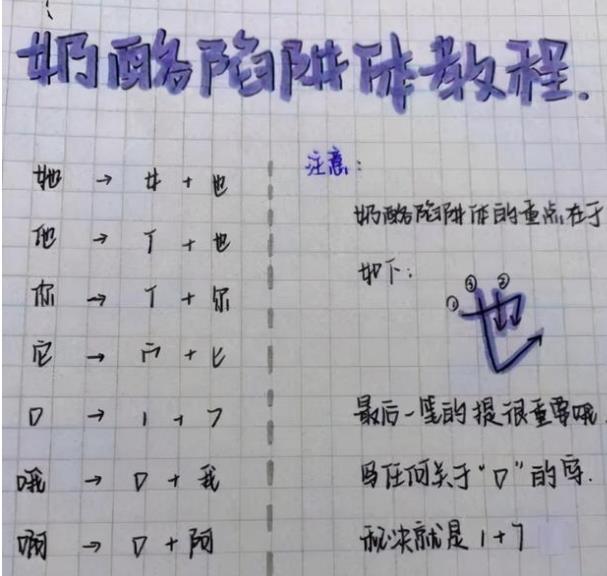 奶酪陷阱体教程.
她 → 女 + 也
他 → 亻 + 也
你 → 亻 + 尔
它 → 宀 + 匕
口 → 1 + 7
哦 → 口 + 我
啊 → 口 + 阿
注意:
奶酪陷阱体的重点在于
如下:
① ③ ②
也
最后一笔的提很重要哦.
写任何关于“口”的字.
秘决就是 1+7